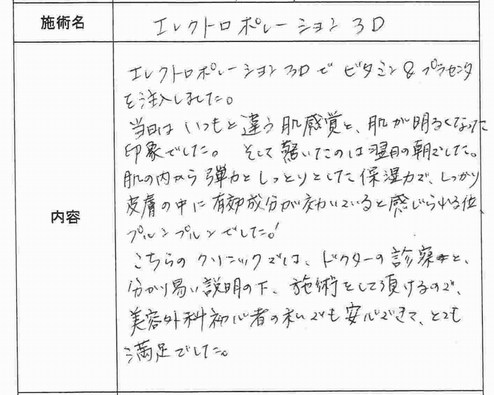 施術名
エレクトロポレーション3D
内容
エレクトロポレーション3Dで ビタミン& プラセンタ
を注入しました。
当日は いつもと違う肌感覚と、肌が明るくなった
印象でした。 そして驚いたのは翌日の朝でした。
肌の内から弾力としっとりとした保湿力で、しっかり
皮膚の中に有効成分が効いていると感じられる位、
プルンプルンでした!
こちらのクリニックでは、ドクターの診察と、
分かり易い説明の下、施術をして頂けるので、
美容外科初心者の私でも安心できて、とても
満足でした。